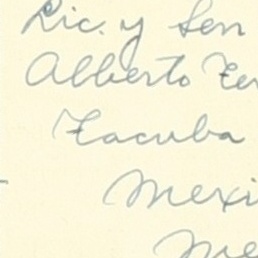 Lic. y Sen
Alberto Fe
Tacuba
Mexi
Me